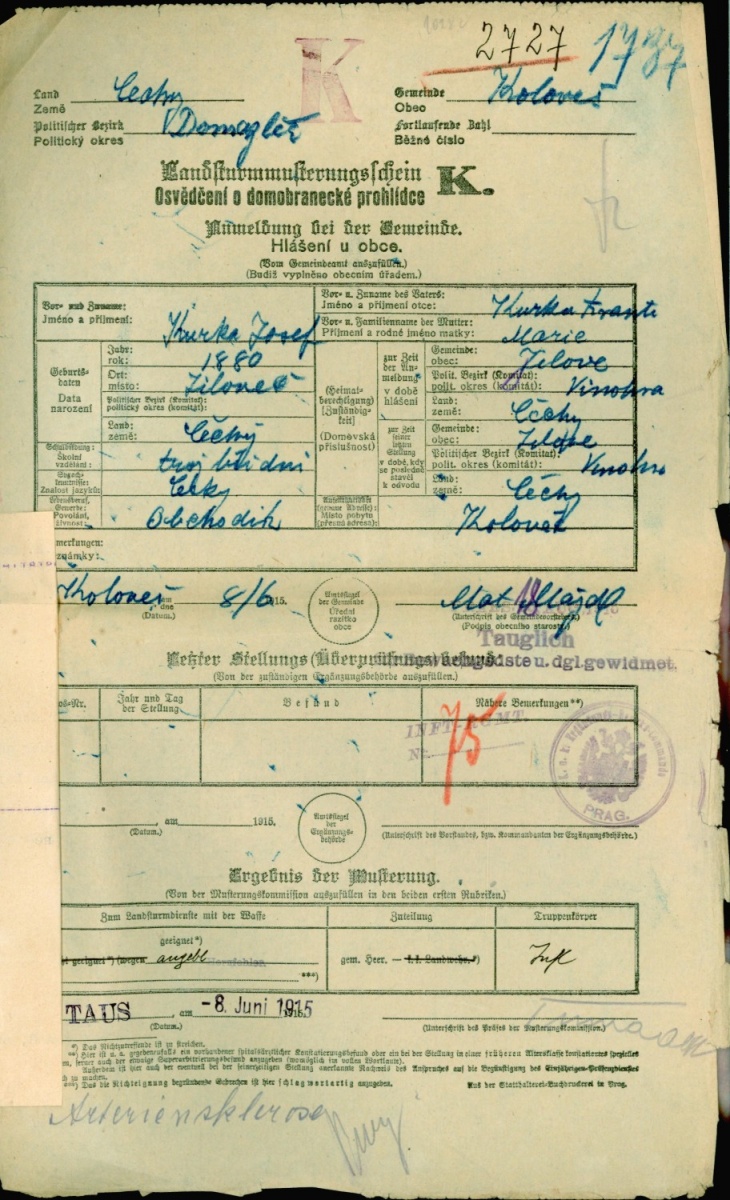 2727 1737
K
Land Čechy Gemeinde Koloveč
Země Obec
Politischer Bezirk Domažlice Fortlaufende Zahl
Politický okres Běžné číslo
Landsturmmusterungsschein K.
Osvědčení o domobranecké prohlídce
Anmeldung bei der Gemeinde.
Hlášení u obce.
(Vom Gemeindeamt auszufüllen.)
(Budiž vyplněno obecním úřadem.)
Vor- und Zuname:
Jméno a příjmení: Kurka Josef
Vor- u. Zuname des Vaters:
Jméno a příjmení otce: Kurka
Vor- u. Familienname der Mutter:
Příjmení a rodné jméno matky: Marie
Geburtsdaten
Data narození
Jahr:
rok: 1880
Ort:
místo:
Politischer Bezirk (Komitat):
politický okres (komitát):
Land:
země: Čechy
(Heimatberechtigung)
(Zuständigkeit)
(Domovská příslušnost)
zur Zeit der Anmeldung
v době hlášení
Gemeinde:
obec: Jilove
Polit. Bezirk (Komitat):
polit. okres (komitát): Vinohra
Land:
země: Čechy
zur Zeit seiner letzten Stellung
v době, kdy se posledně stavěl k odvodu
Gemeinde:
obec: Jilove
Politischer Bezirk (Komitat):
polit. okres (komitát): Vinohra
Land:
země: Čechy
Schulbildung:
Školní vzdělání:
Sprachkenntnisse:
Znalost jazyků: Česky
Lebensberuf, Gewerbe:
Povolání, živnost: Obchodník
Aufenthaltsort (genaue Adresse):
Místo pobytu (přesná adresa): Koloveč
merkungen:
známky:
Koloveč dne 8/6 1915.
(Datum.)
Amtssiegel der Gemeinde
Úřední razítko obce
Mat
(Unterschrift des Gemeindevorstehers.)
(Podpis obecního starosty.)
Tauglich
dienste u. dgl. gewidmet.
Letzter Stellungs (Überprüfungs) befund.
(Von der zuständigen Ergänzungsbehörde auszufüllen.)
os-Nr. Jahr und Tag der Stellung Befund Nähere Bemerkungen**)
INFT-RGMT
Nr. 75
PRAG.
, am 1915.
(Datum.)
Amtssiegel der Ergänzungsbehörde
(Unterschrift des Vorstandes, bzw. Kommandanten der Ergänzungsbehörde.)
Ergebnis der Musterung.
(Von der Musterungskommission auszufüllen in den beiden ersten Rubriken.)
Zum Landsturmdienste mit der Waffe Zuteilung Truppenkörper
geeignet*)
geeignet*) (wegen angebl
***)
gem. Heer. — k. k. Landwehr.*)
Inft
TAUS , am -8. Juni 1915
(Datum.)
(Unterschrift des Präses der Musterungskommission.)
*) Das Nichtzutreffende ist zu streichen.
**) Hier ist u. a. gegebenenfalls ein vorhandener spitalsärztlicher Konstatierungsbefund oder ein bei der Stellung in einer früheren Altersklasse konstatiertes spezielles
en, ferner auch der etwaige Superarbitrierungsbefund anzugeben (womöglich im vollen Wortlaute).
Außerdem ist hier auch der eventuell bei der seinerzeitigen Stellung anerkannte Nachweis des Anspruchs auf die Begünstigung des Einjährigen-Präsenzdienstes
ch zu machen.
***) Das die Nichteignung begründende Gebrechen ist hier schlagwortartig anzugeben. Aus der Statthalterei-Buchdruckerei in Prag.
Arteriensklerose